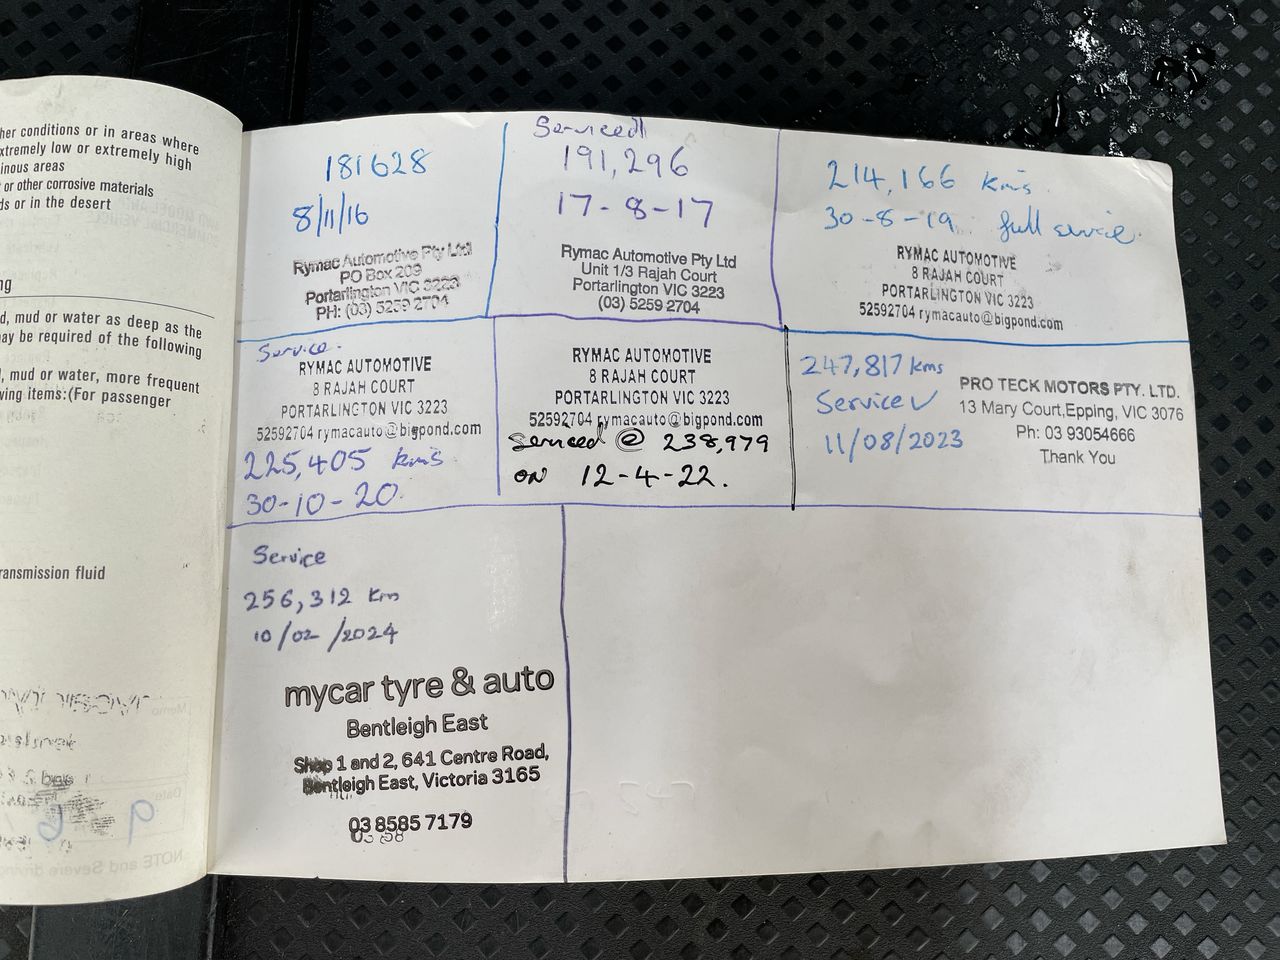 her conditions or in areas where
xtremely low or extremely high
inous areas
or other corrosive materials
ds or in the desert
ng
d, mud or water as deep as the
nay be required of the following
, mud or water, more frequent
wing items:(For passenger
ransmission fluid
181628
8/11/16
Rymac Automotive Pty Ltd
PO Box 209
Portarlington VIC 3223
PH: (03) 5259 2704
Serviced
191,296
17-8-17
Rymac Automotive Pty Ltd
Unit 1/3 Rajah Court
Portarlington VIC 3223
(03) 5259 2704
214,166 kms
30-8-19 full service
RYMAC AUTOMOTIVE
8 RAJAH COURT
PORTARLINGTON VIC 3223
52592704 rymacauto@bigpond.com
Service.
RYMAC AUTOMOTIVE
8 RAJAH COURT
PORTARLINGTON VIC 3223
52592704 rymacauto@bigpond.com
225,405 kms
30-10-20
RYMAC AUTOMOTIVE
8 RAJAH COURT
PORTARLINGTON VIC 3223
52592704 rymacauto@bigpond.com
Serviced @ 238,979
ON 12-4-22.
247,817 kms
Service✓
11/08/2023
PRO TECK MOTORS PTY. LTD.
13 Mary Court,Epping, VIC 3076
Ph: 03 93054666
Thank You
Service
256,312 km
10/02/2024
mycar tyre & auto
Bentleigh East
Shop 1 and 2, 641 Centre Road,
Bentleigh East, Victoria 3165
03 8585 7179